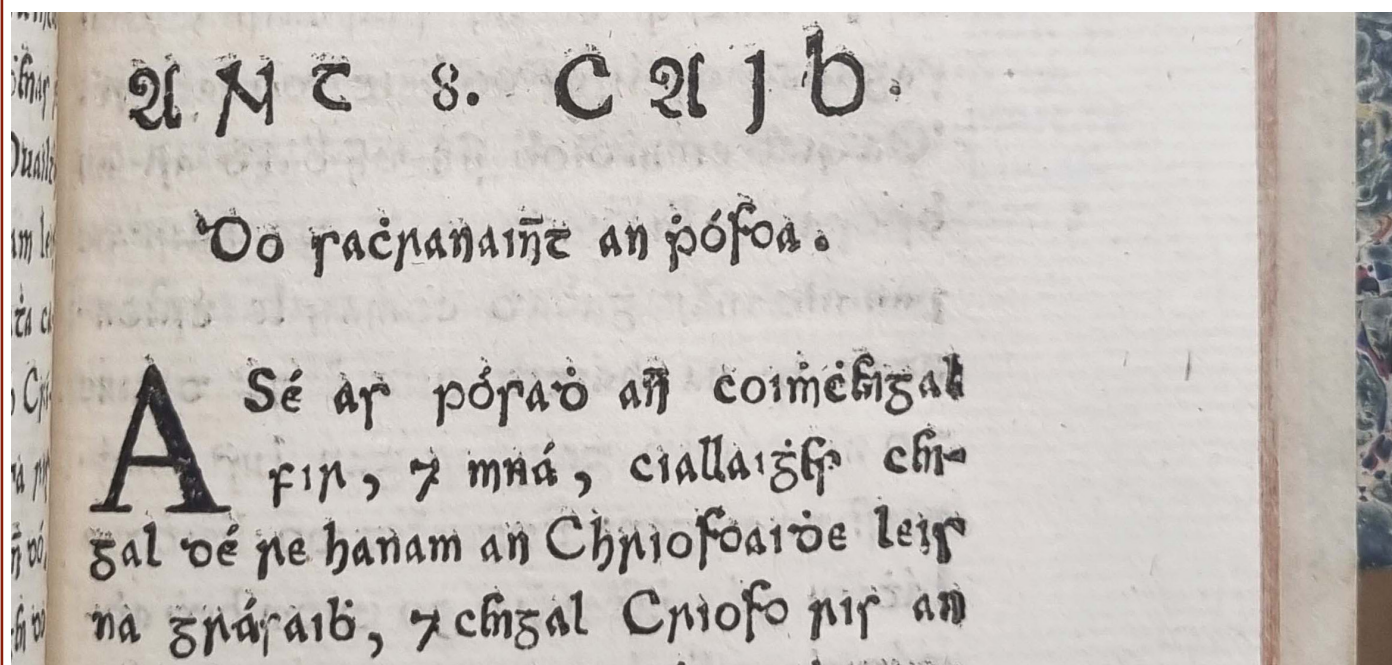 ANT 8. CAIB.
Do saċranaiñt an ṗósda.
A Sé as pósaḋ añ coiṁċeangal
fir, ⁊ mná, ciallaiġeas cean-
gal dé re hanam an Chriosdaiḋe leis
na grásaiḃ, ⁊ ceangal Criosd ris an